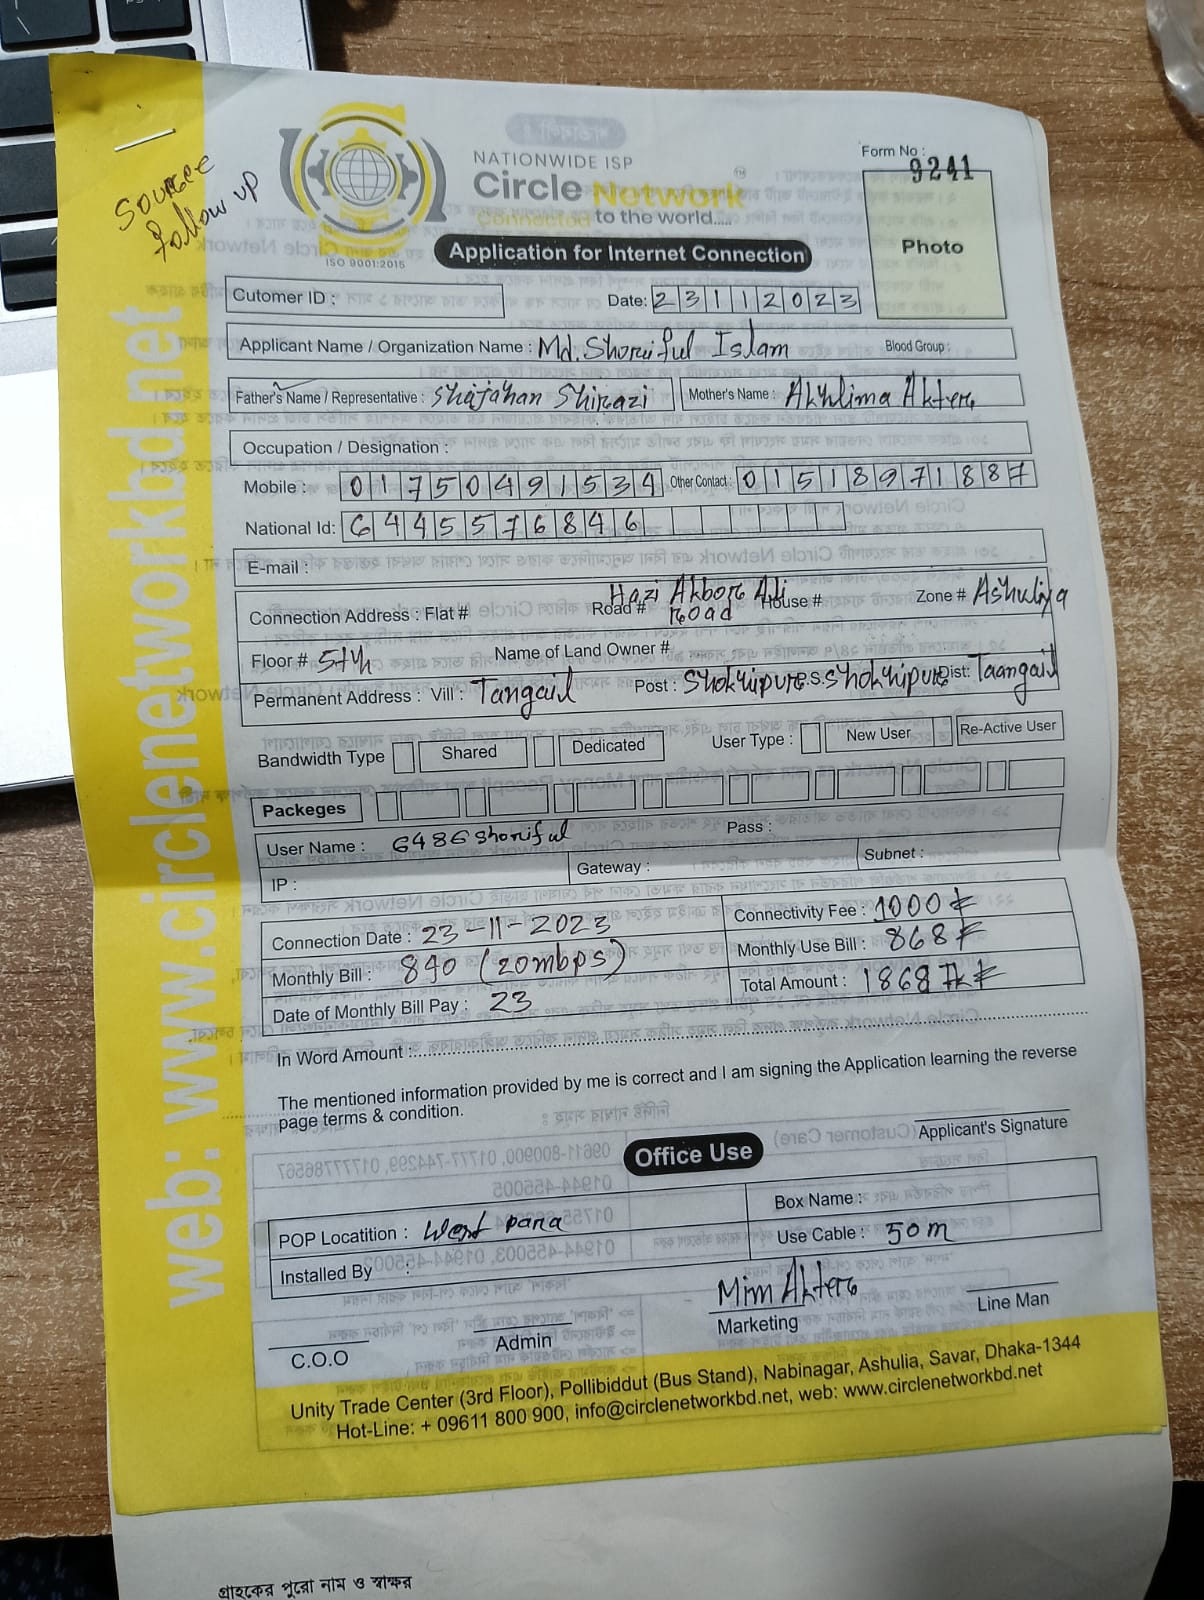 Source
follow up
NATIONWIDE ISP
Circle Network™
Connected to the world.....
ISO 9001:2015
Application for Internet Connection
Form No : 9241
Photo
Cutomer ID :
Date: 23112023
Applicant Name / Organization Name : Md. Shoriful Islam
Blood Group :
Father's Name / Representative : Shajahan Shirazi
Mother's Name : Akhlima Akter
Occupation / Designation :
Mobile : 01750491534 Other Contact : 01518971887
National Id: 6445576846
E-mail :
Connection Address : Flat # Road # Hazi Akbor Ali Road House # Zone # Ashuliya
Floor # 5th Name of Land Owner #
Permanent Address : Vill : Tangail Post : Shokhipur P.S: Shokhipur Dist: Taangail
Bandwidth Type Shared Dedicated User Type : New User Re-Active User
Packeges
User Name : 6486shoriful Pass :
IP : Gateway : Subnet :
Connection Date : 23-11-2023 Connectivity Fee : 1000
Monthly Bill : 840 (20mbps) Monthly Use Bill : 868
Date of Monthly Bill Pay : 23 Total Amount : 1868
In Word Amount :
The mentioned information provided by me is correct and I am signing the Application learning the reverse
page terms & condition.
Applicant's Signature
Office Use
POP Locatition : West para Box Name :
Use Cable : 50m
Installed By :
Mim Akter
C.O.O Admin Marketing Line Man
Unity Trade Center (3rd Floor), Pollibiddut (Bus Stand), Nabinagar, Ashulia, Savar, Dhaka-1344
Hot-Line: + 09611 800 900, info@circlenetworkbd.net, web: www.circlenetworkbd.net
web: www.circlenetworkbd.net
গ্রাহকের পুরো নাম ও স্বাক্ষর